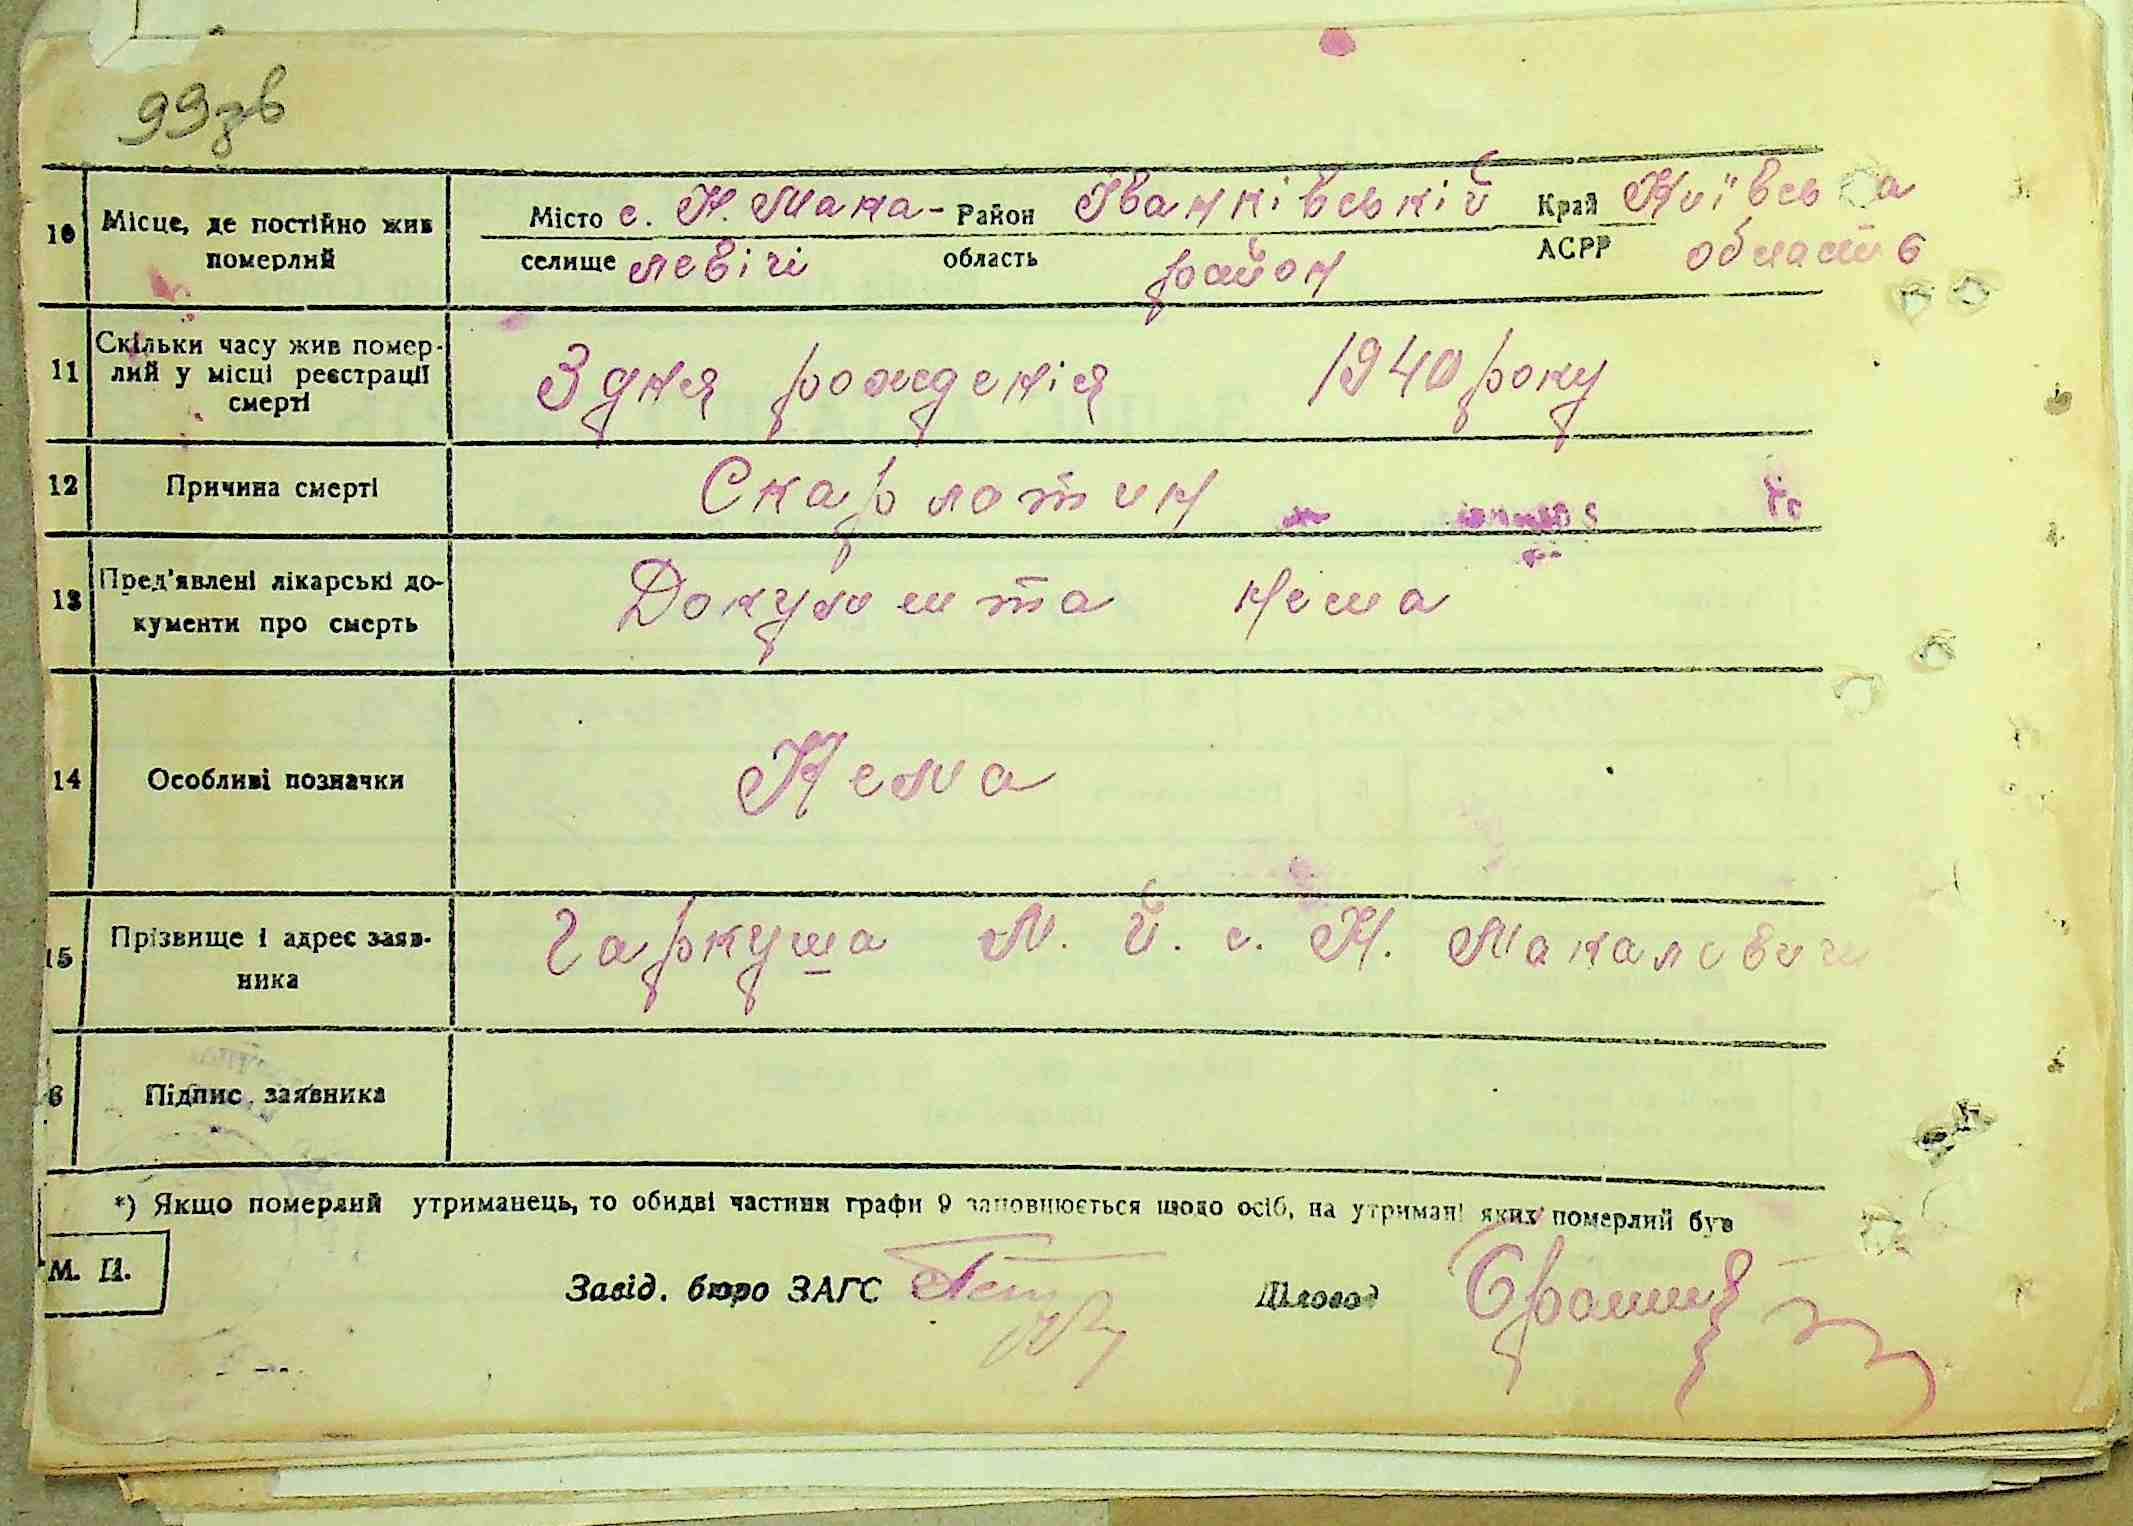 99зв
10 Місце, де постійно жив померлий
Місто с. Н. Мака- Район Іванківський Край Київська
селище левічі область район АСРР область
11 Скільки часу жив помер-
лий у місці реєстрації
смерті
З дня рождения 1940 року
12 Причина смерті Скарлатин
13 Пред'явлені лікарські до-
кументи про смерть
Документа нема
14 Особливі позначки Нема
15 Прізвище і адрес заяв-
ника
Гаркуша М. Й. с. Н. Макалевичі
6 Підпис заявника
*) Якщо померлий утриманець, то обидві частини графи 9 заповнюється щодо осіб, на утримані яких померлий був
М. П.
Завід. бюро ЗАГС Діловод